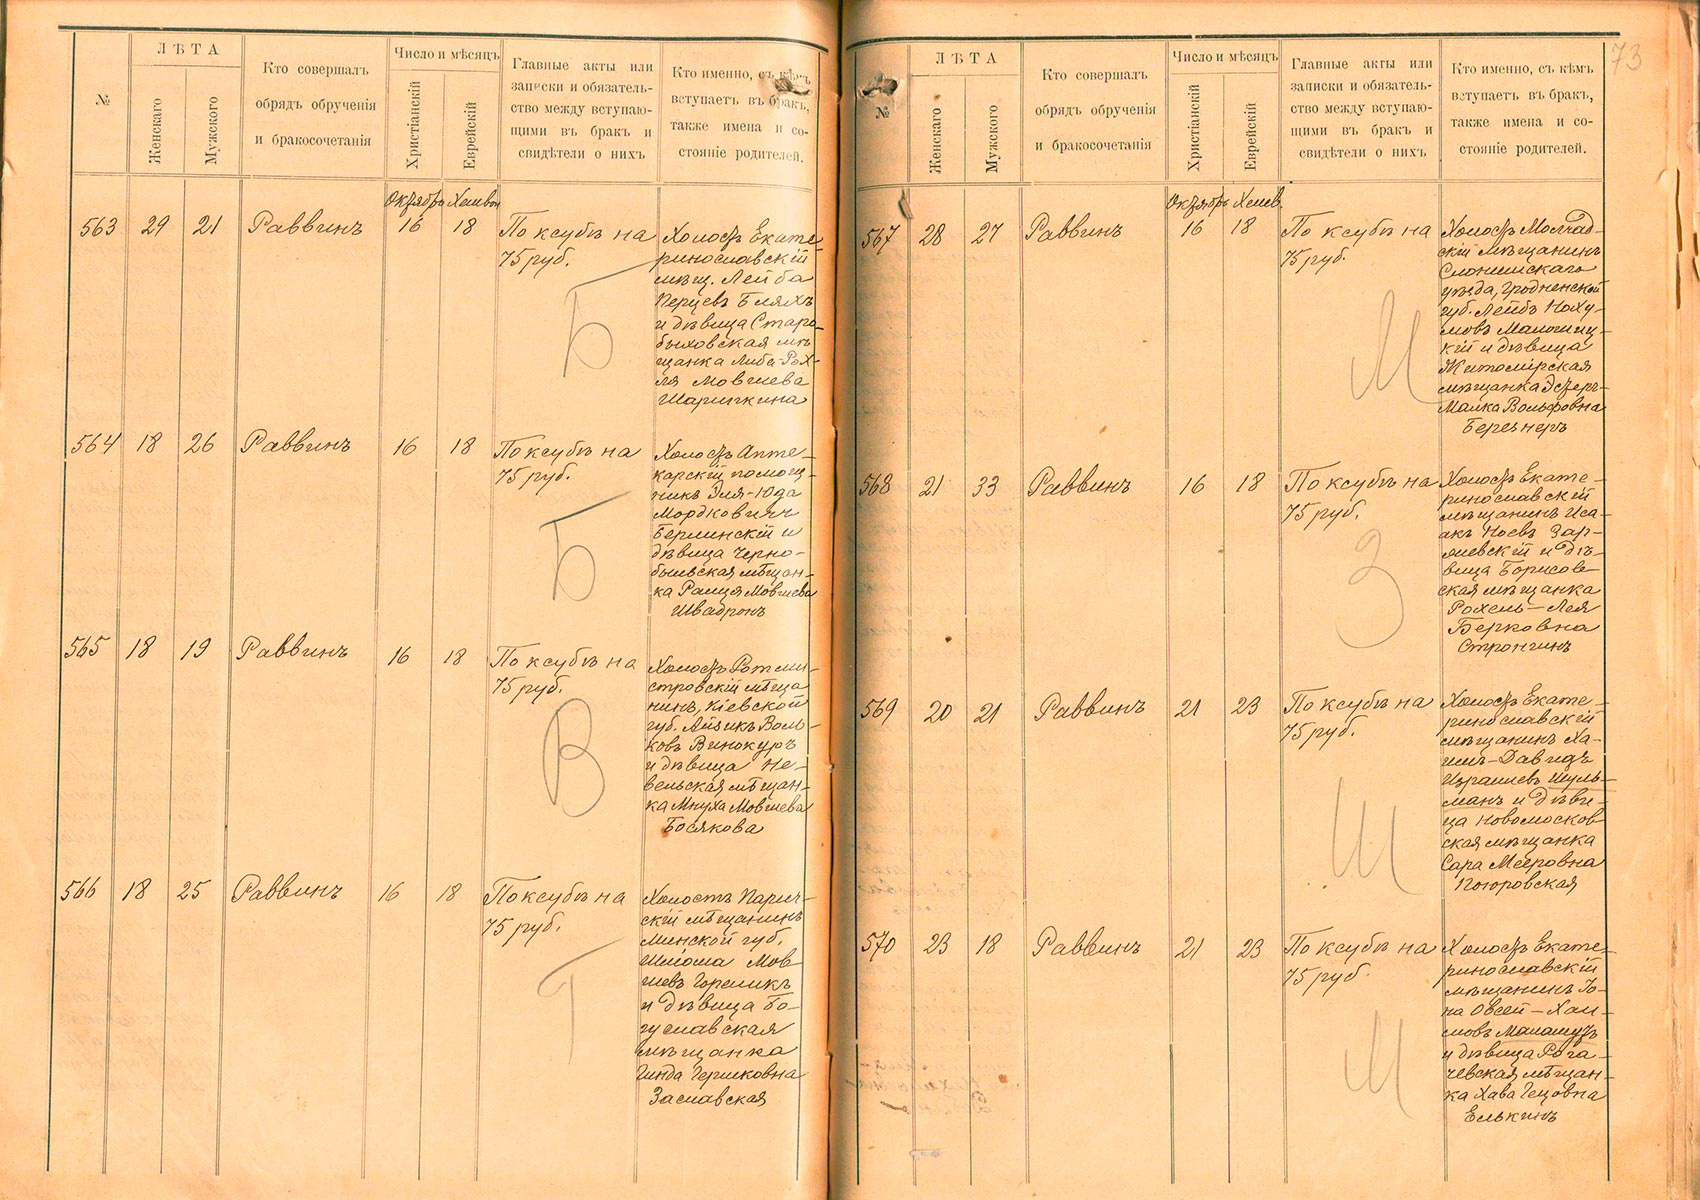 №
ЛѢТА
Женскаго
Мужского
Кто совершалъ
обрядъ обрученія
и бракосочетанія
Число и мѣсяцъ
Христіанскій
Еврейскій
Главные акты или
записки и обязатель-
ство между вступаю-
щими въ бракъ и
свидѣтели о нихъ
Кто именно, съ кѣмъ
вступаетъ въ бракъ,
также имена и со-
стояніе родителей.
Октябрь Хешвон
563 29 21 Раввинъ 16 18
По ксубѣ на
75 руб.
Б
Холостъ Екате-
ринославскій
мѣщ. Лейба
Перцевъ Бляхъ
и дѣвица Старо-
быховская мѣ
щанка Либа-Рох-
ля Мовшева
Шарипкина
564 18 26 Раввинъ 16 18
По ксубѣ на
75 руб.
Б
Холостъ Апте-
карскій помощ-
никъ Эля-Юда
Мордковичъ
Берлинскій и
дѣвица Черно-
быльская мѣщан-
ка Раиця Мовшева
Швадронъ
565 18 19 Раввинъ 16 18
По ксубѣ на
75 руб.
В
Холостъ Ротми-
стровскій мѣща
нинъ, Кіевской
губ. Айзикъ Воль-
ковъ Винокуръ
и дѣвица Не-
вельская мѣщан-
ка Мнуха Мовшева
Босякова
566 18 25 Раввинъ 16 18
По ксубѣ на
75 руб.
Г
Холостъ Парич-
скій мѣщанинъ
Минской губ.
Шлома Мов
шевъ Гореликъ
и дѣвица Бо-
гуславская
мѣщанка
Гинда Гершковна
Заславская
73
№
ЛѢТА
Женскаго
Мужского
Кто совершалъ
обрядъ обрученія
и бракосочетанія
Число и мѣсяцъ
Христіанскій
Еврейскій
Главные акты или
записки и обязатель-
ство между вступаю-
щими въ бракъ и
свидѣтели о нихъ
Кто именно, съ кѣмъ
вступаетъ въ бракъ,
также имена и со-
стояніе родителей.
Октябрь Хешв.
567 28 27 Раввинъ 16 18
По ксубѣ на
75 руб.
М
Холостъ Молчад-
скій мѣщанинъ
Слонимскаго
уѣзда, Гродненской
губ. ЛейбъНоху-
мовъ Маловиц-
кій и дѣвица
Житомірская
мѣщанка Эстеръ-
Малка Вольфовна
Березнеръ
568 21 33 Раввинъ 16 18
По ксубѣ на
75 руб.
З
Холостъ Екате-
ринославскій
мѣщанинъ Иса-
акъ Ноевъ Зар-
жевскій и дѣ-
вица Борисов-
ская мѣщанка
Рохель-Лея
Берковна
Стронгинъ
569 20 21 Раввинъ 21 23
По ксубѣ на
75 руб.
Ш
Холостъ Екате-
ринославскій
мѣщанинъ Ха-
имъ-Давидъ
Израилевъ Шуль-
манъ и дѣви-
ца Новомосков
ская мѣщанка
Сара Мееровна
Погоровская
570 23 18 Раввинъ 21 23
По ксубѣ на
75 руб.
М
Холостъ Екате-
ринославскій
мѣщанинъ Іо-
на Овсей-Хаи-
мовъ Маламудъ
и дѣвица Рога-
чевская мѣщан-
ка Хава Гецовна
Елькинъ